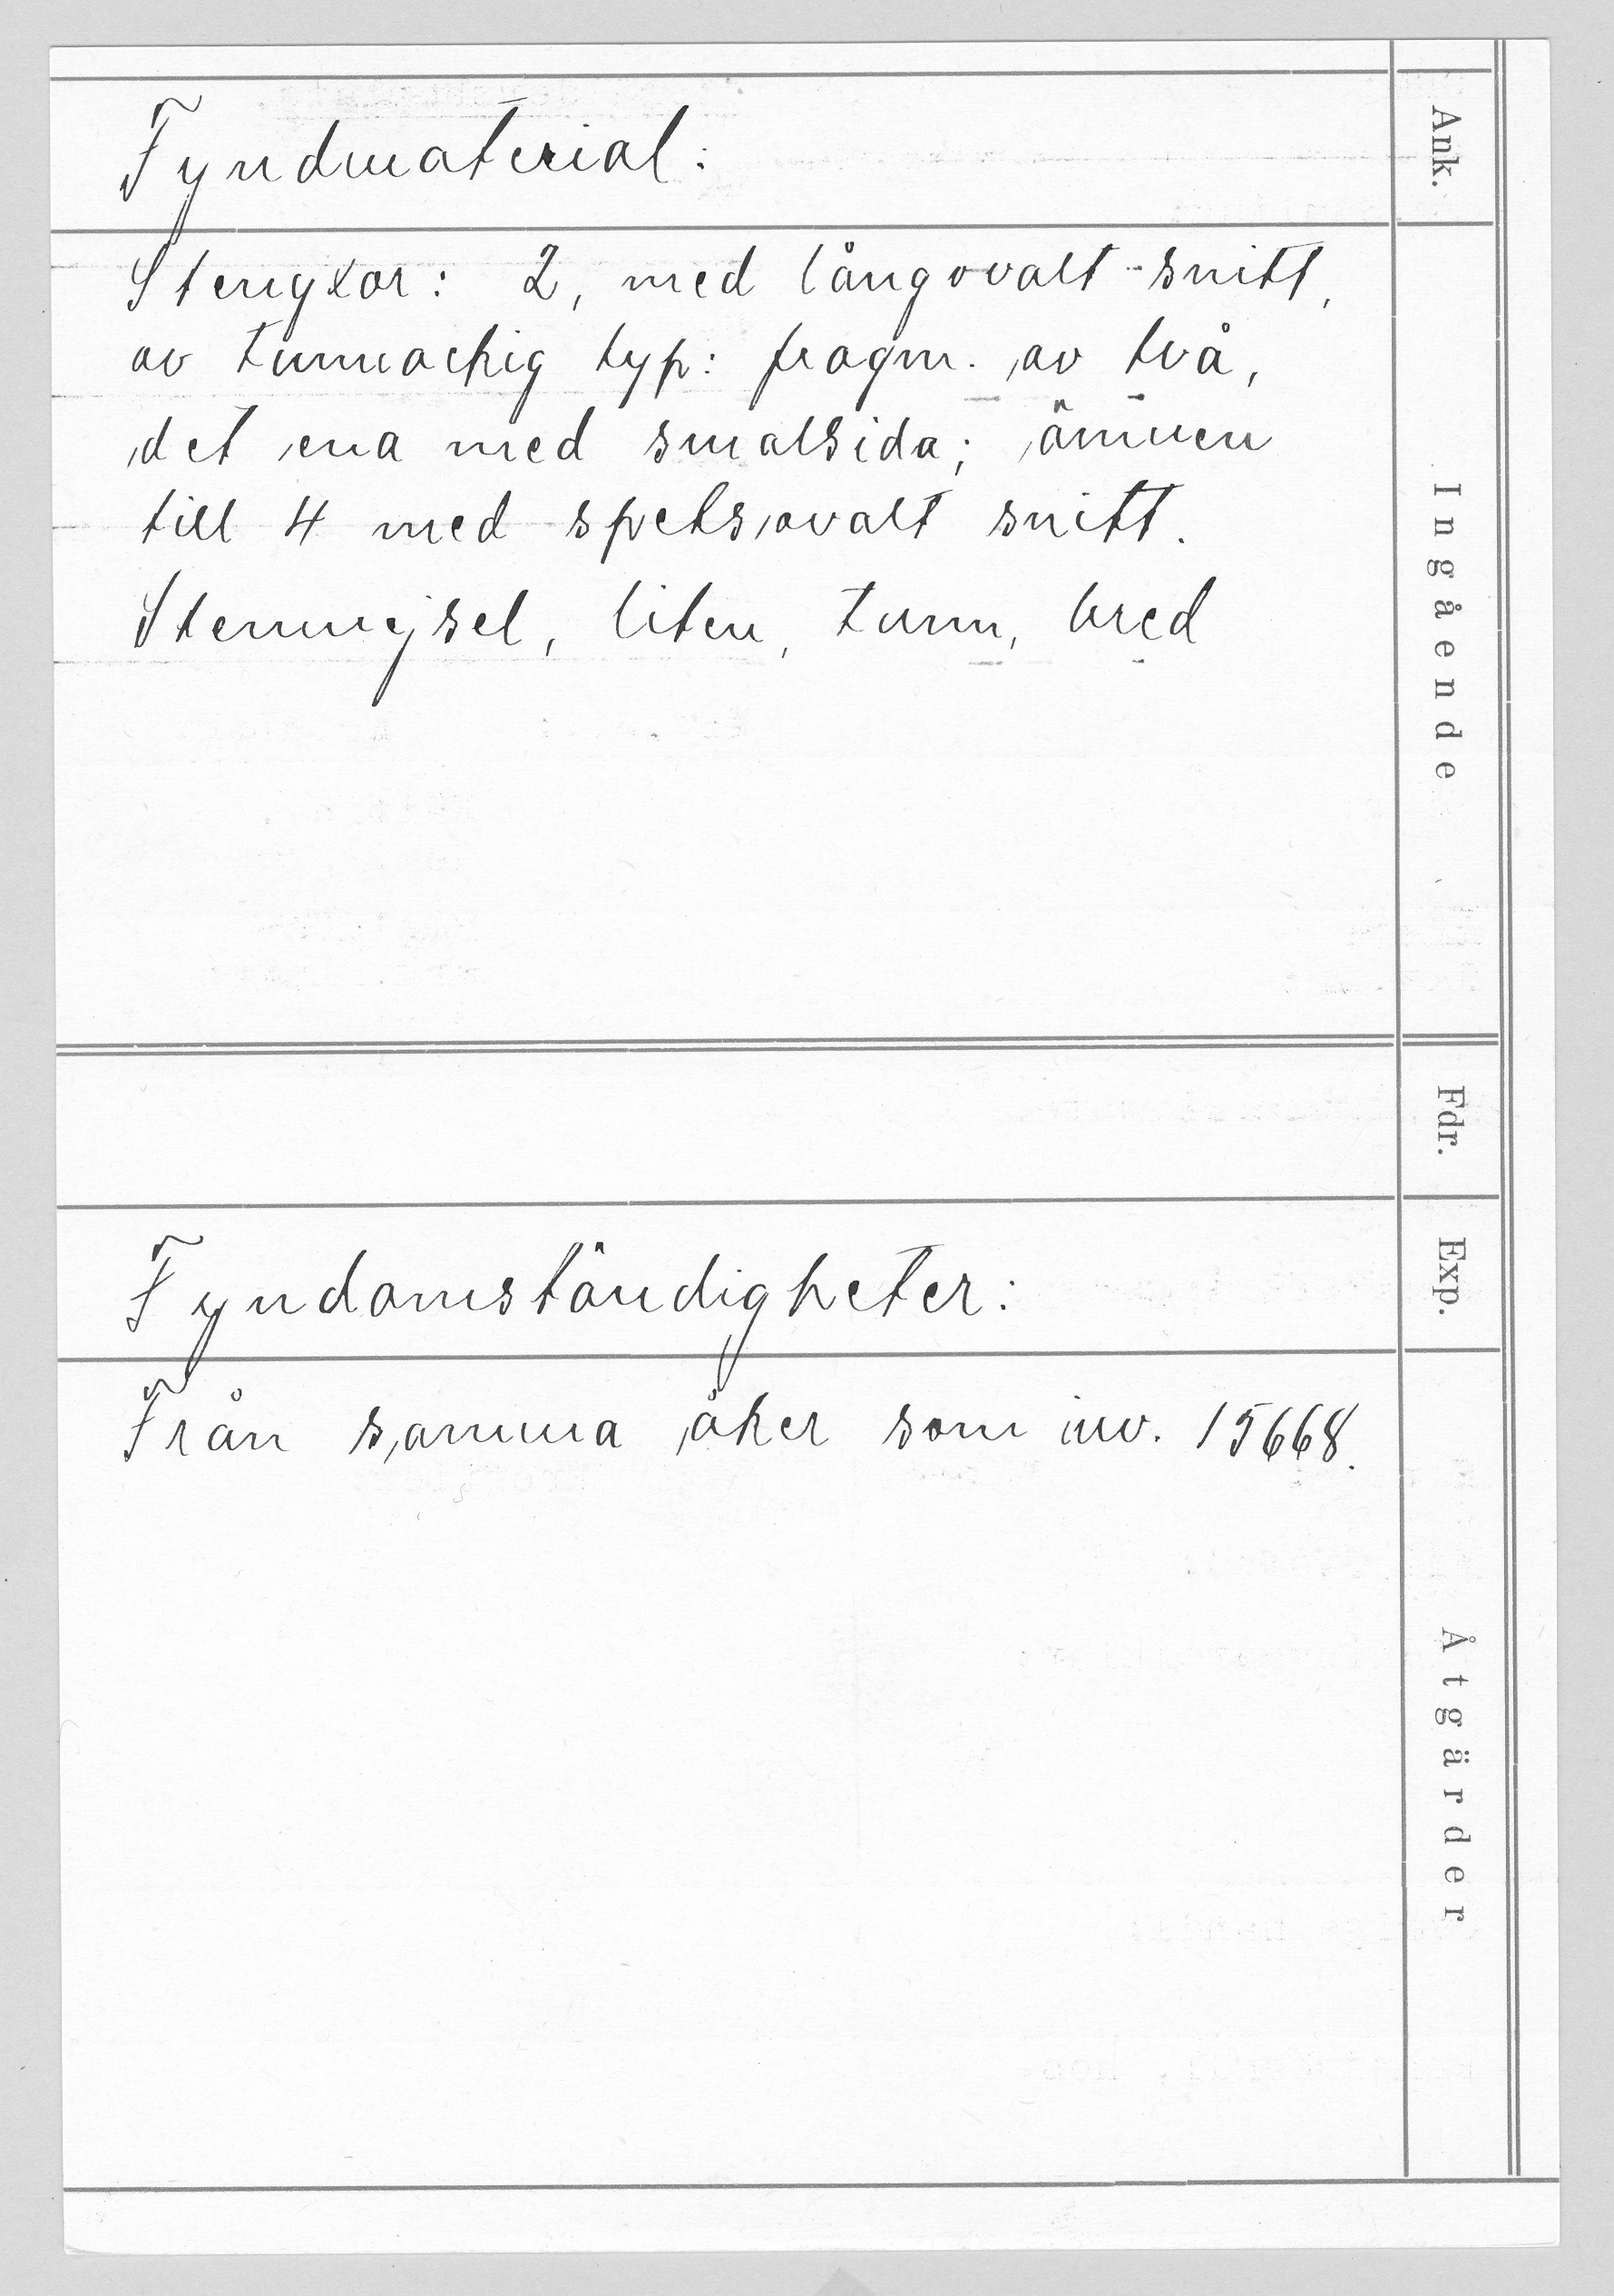 Fyndmaterial:
Stenyxor: 2, med långovalt snitt,
av tunnackig typ: fragm. av två,
det ena med smalsida; ämnen
till 4 med spetsovalt snitt.
Stenmejsel, liten, tunn, bred
Fyndomständigheter:
Från samma åker som inv. 15668.
Ank.
Ingående
Fdr.
Exp.
Åtgärder